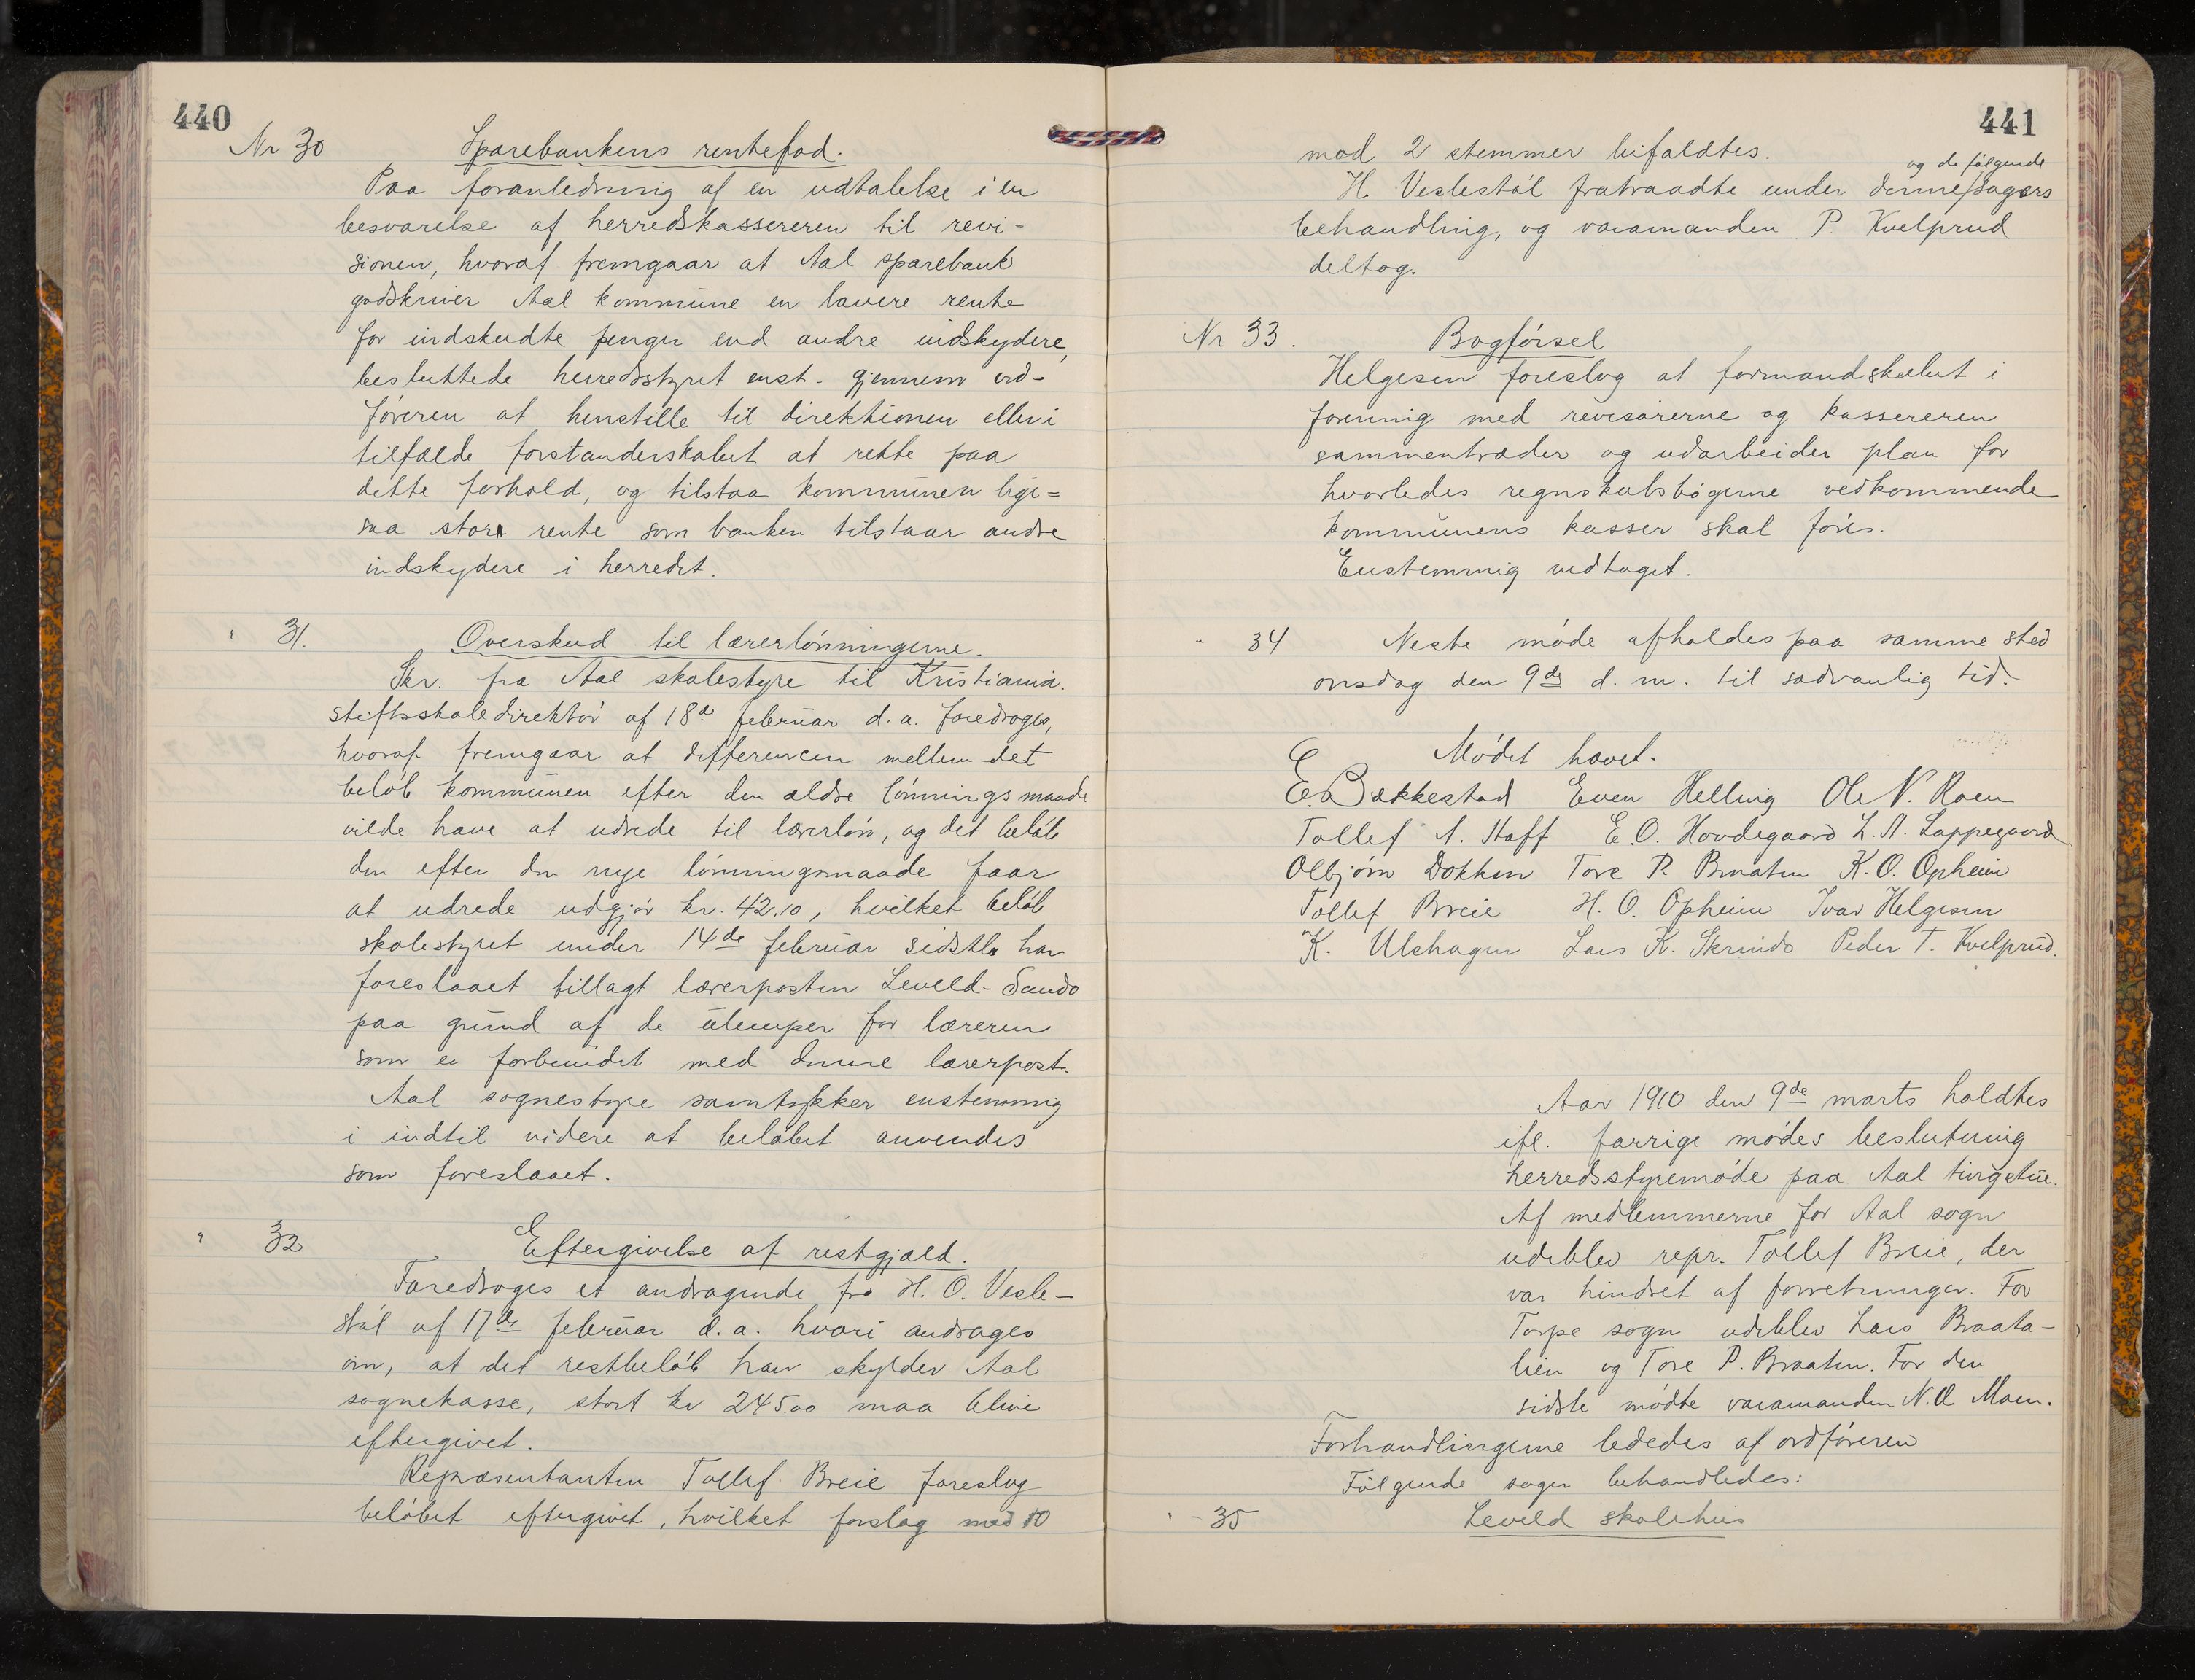 440
Nr 30 Sparebankens rentefod.
Paa foranledning af en udtalelse i en
besvarelse af herredskassereren til revi-
sionen, hvoraf fremgaar at Aal sparebank
godskriver Aal kommune en lavere rente
for indskudte penger end andre indskydere,
besluttede herredsstyret enst. gjennem ord-
føreren at henstille til direktionen eller i
tilfælde forstanderskabet at rette paa
dette forhold, og tilstaa kommunen lige=
saa stor rente som banken tilstaar andre
indskydere i herredet.
" 31. Overskud til lærerlønningerne.
Skr. fra Aal skolestyre til Kristiania.
stiftsskoledirektør af 18de februar d.a. foredroges,
hvoraf fremgaar at differencen mellem det
beløb kommunen efter den ældre lønningsmaade
vilde have at udrede til lærerløn, og det beløb
den efter den nye lønningsmaade faar
at udrede udgjør kr. 42.10, hvilket beløb
skolestyret under 14de februar sidstl. har
foreslaaet tillagt lærerposten Leveld-Sando
paa grund af de ulemper for læreren
som er forbundet med denne lærerpost.
Aal sognestyre samtykker enstemmig
i indtil videre at beløbet anvendes
som foreslaaet.
" 32 Eftergivelse af restgjæld.
Foredroges et andragende fra H. O. Vesle-
støl af 17de februar d.a. hvori andrages
om, at det restbeløb han skylder Aal
sognekasse, stort kr 245.00 maa blive
eftergivet.
Repræsentanten Tollef Breie foreslog
beløbet eftergivet, hvilket forslag mod 10
441
mod 2 stemmer bifaldtes.
og de følgende
H. Veslestøl fratraadte under denne sagers
behandling, og varamanden P. Kvelprud
deltog.
Nr 33. Bogførsel
Helgesen foreslog at formandskabet i
forening med revisorerne og kassereren
sammentræder og udarbeider plan for
hvorledes regnskabsbøgerne vedkommende
kommunens kasser skal føres.
Enstemmig vedtaget.
" 34 Neste møde afholdes paa samme sted
onsdag den 9de d.m. til sædvanlig tid.
Mødet hævet.
E. Bækkestad Even Helling Ole N. Roen
Tollef A. Haff E.O. Hovdegaard L.A. Lappegaard
Olbjørn Dokken Tore P. Braaten K.O. Opheim
Tollef Breie H. O. Opheim Ivar Helgesen
K. Ulshagen Lars K. Skrindo Peder T. Kvelprud.
Aar 1910 den 9de marts holdtes
ifl. forrige mødes beslutning
herredsstyremøde paa Aal tingstue.
Af medlemmerne for Aal sogn
udeblev repr. Tollef Breie, der
var hindret af forretninger. For
Torpe sogn udeblev Lars Braata-
lien og Tore P. Braaten. For den
sidste mødte varamanden N.O. Moen.
Forhandlingerne lededes af ordføreren
Følgende sager behandledes:
" - 35 Leveld skolehus